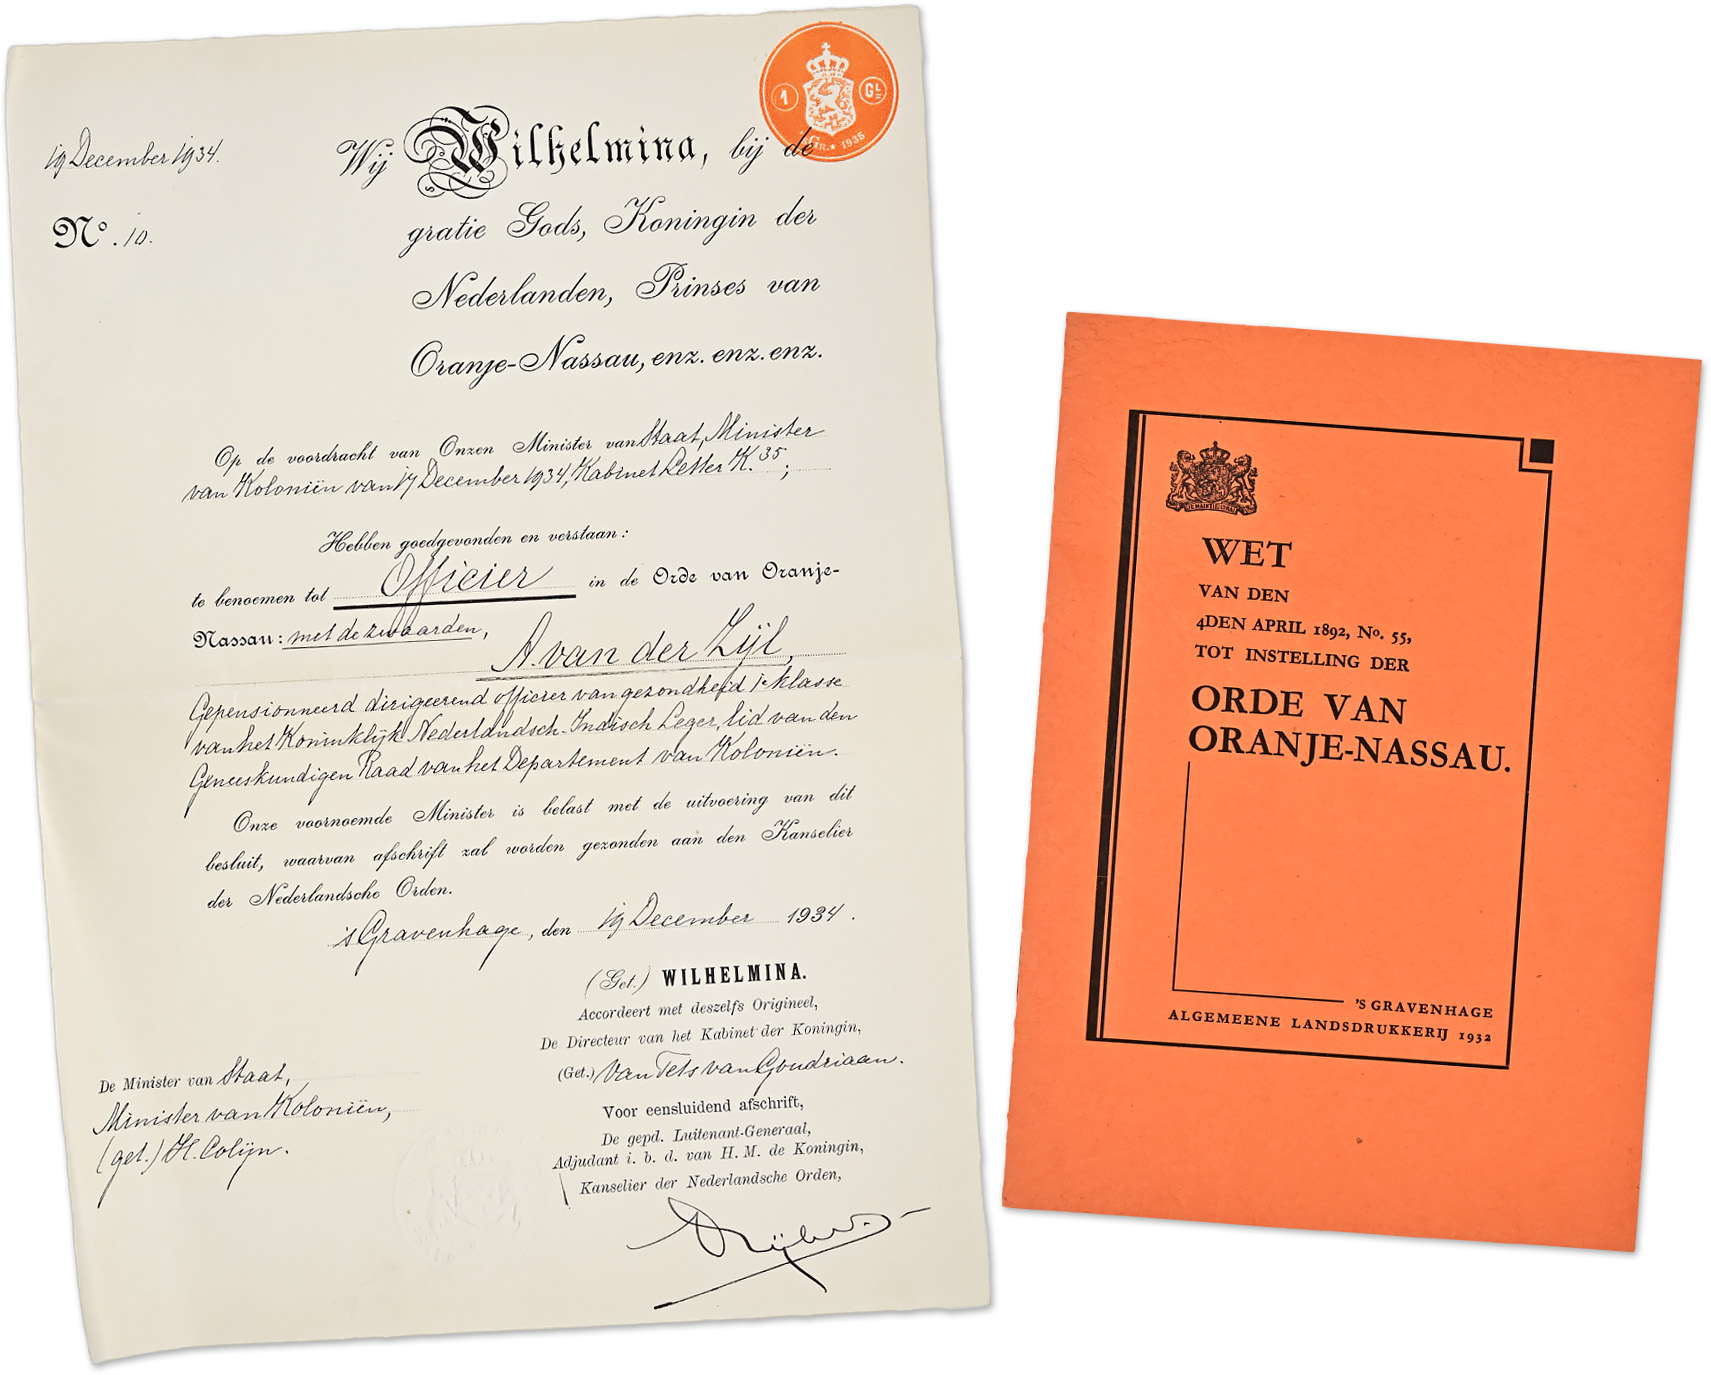 1 GL
GR. ★ 1935
19 December 1934.
No. 10.
Wij Wilhelmina, bij de
gratie Gods, Koningin der
Nederlanden, Prinses van
Oranje-Nassau, enz. enz. enz.
Op de voordracht van Onzen Minister van Staat, Minister
van Koloniën van 17 December 1934, Kabinet Letter K.35;
Hebben goedgevonden en verstaan:
te benoemen tot Officier in de Orde van Oranje-
Nassau: met de zwaarden,
A. van der Zijl,
Gepensionneerd dirigeerend officier van gezondheid 1e klasse
van het Koninklijk Nederlandsch-Indisch Leger, lid van den
Geneeskundigen Raad van het Departement van Koloniën.
Onze voornoemde Minister is belast met de uitvoering van dit
besluit, waarvan afschrift zal worden gezonden aan den Kanselier
der Nederlandsche Orden.
's Gravenhage, den 19 December 1934.
(Get.) WILHELMINA.
Accordeert met deszelfs Origineel,
De Directeur van het Kabinet der Koningin,
(Get.) van Tets van Goudriaan.
Voor eensluidend afschrift,
De gepd. Luitenant-Generaal,
Adjudant i. b. d. van H. M. de Koningin,
Kanselier der Nederlandsche Orden,
De Minister van Staat,
Minister van Koloniën,
(get.) H. Colijn.
WET
VAN DEN
4DEN APRIL 1892, No. 55,
TOT INSTELLING DER
ORDE VAN
ORANJE-NASSAU.
'S GRAVENHAGE
ALGEMEENE LANDSDRUKKERIJ 1932